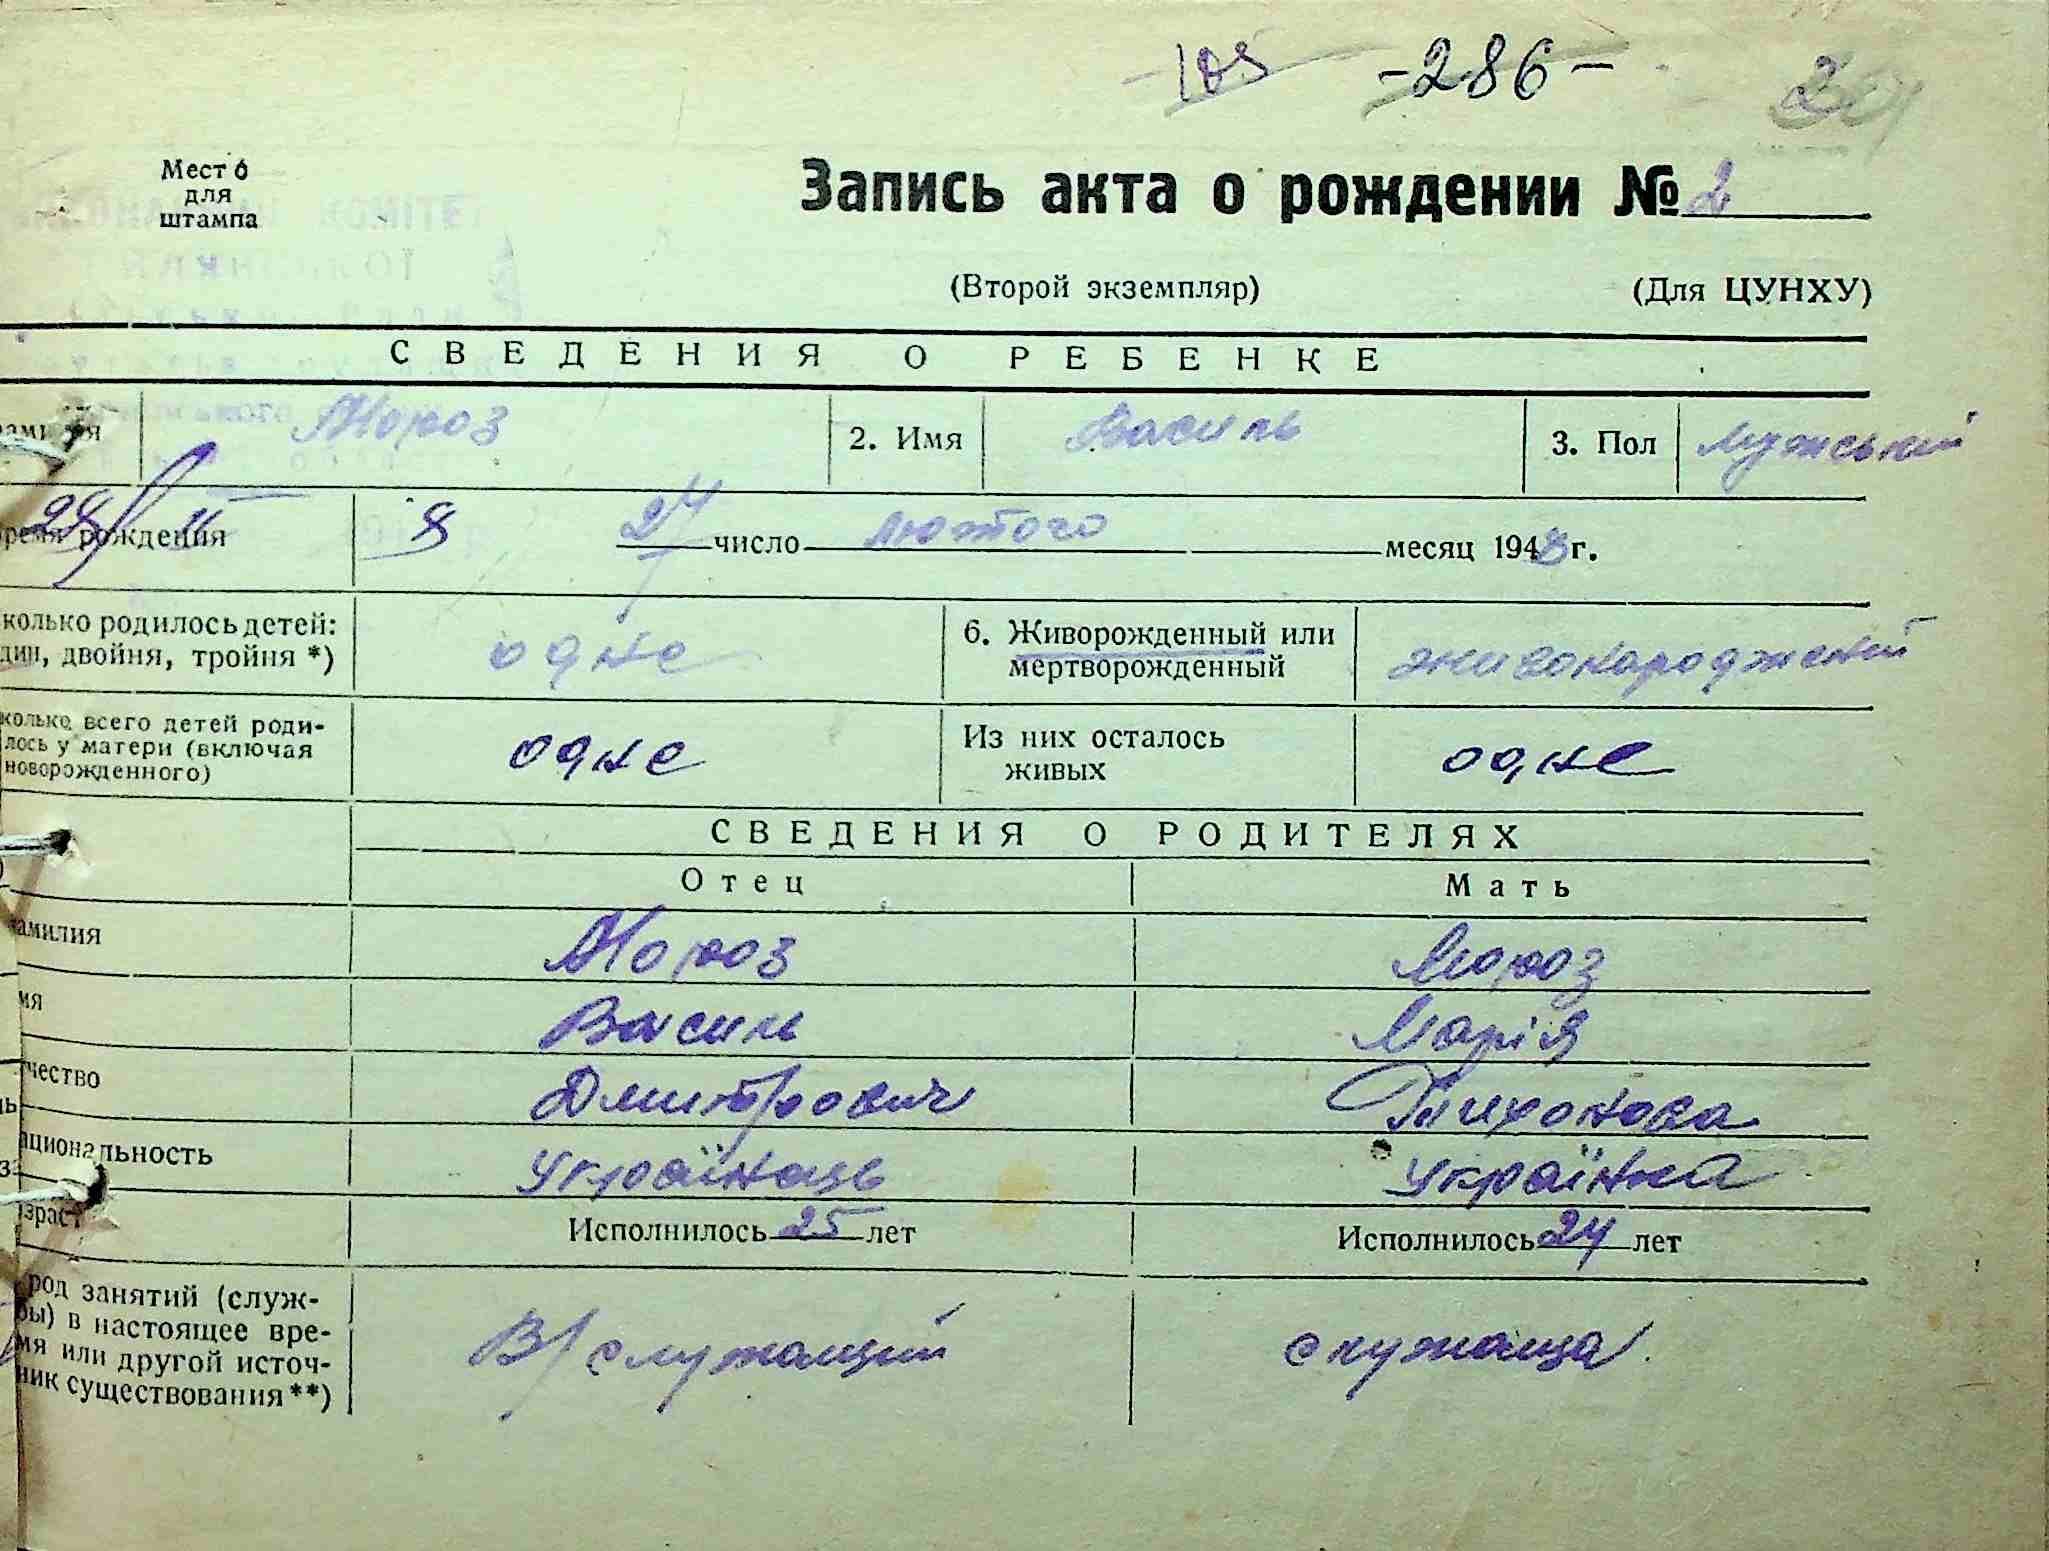 105 -286-
Место
для
штампа
Запись акта о рождении № 2
(Второй экземпляр) (Для ЦУНХУ)
СВЕДЕНИЯ О РЕБЕНКЕ
Мороз 2. Имя Василь 3. Пол мужський
время рождения 8 24 число лютого месяц 1943 г.
колько родилось детей: одне 6. Живорожденный или живонароджений
дин, двойня, тройня *) мертворожденный
колько всего детей роди-
лось у матери (включая одне Из них осталось одне
новорожденного) живых
СВЕДЕНИЯ О РОДИТЕЛЯХ
Отец Мать
амилия Мороз Мороз
мя Василь Марія
чество Дмитрович Тихонова
ациональность Українець Українка
зраст Исполнилось 25 лет Исполнилось 24 лет
род занятий (служ-
бы) в настоящее вре- В/служащий служаща
мя или другой источ-
ник существования **)